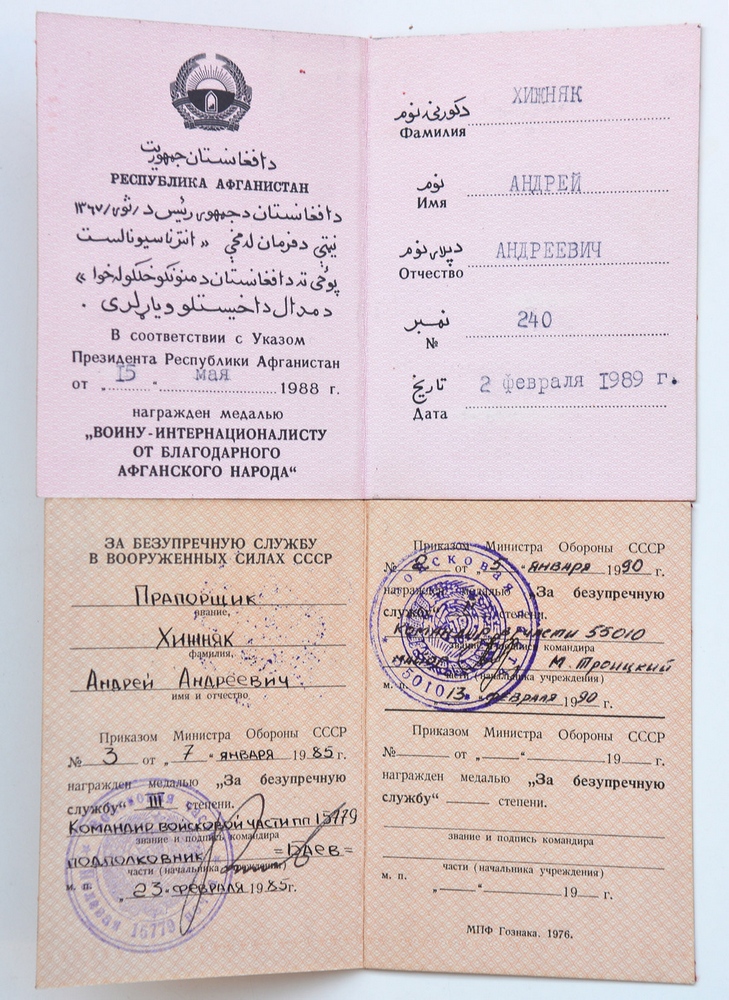 دافغانستان جمهوریت
РЕСПУБЛИКА АФГАНИСТАН
دافغانستان دجمهوری رئیس د /ثور/ ۱۳۶۷
نیټې دفرمان له مخې «انترناسیونالست
پوځی ته دافغانستان دمننوونکو خلکو له خوا»
دمدال داخیستلو ویاړ لری .
В соответствии с Указом
Президента Республики Афганистан
от „ 15 “ мая 1988 г.
награжден медалью
„ВОИНУ-ИНТЕРНАЦИОНАЛИСТУ
ОТ БЛАГОДАРНОГО
АФГАНСКОГО НАРОДА“
دکورنۍ نوم ХИЖНЯК
Фамилия
نوم АНДРЕЙ
Имя
دپلار نوم АНДРЕЕВИЧ
Отчество
نمبر 240
№
تاریخ 2 февраля 1989 г.
Дата
ЗА БЕЗУПРЕЧНУЮ СЛУЖБУ
В ВООРУЖЕННЫХ СИЛАХ СССР
Прапорщик
звание,
Хижняк
фамилия,
Андрей Андреевич
имя и отчество
Приказом Министра Обороны СССР
№ 3 от „ 7 “ января 1985 г.
награжден медалью „За безупречную
службу“ III степени.
Командир войсковой части пп 15779
звание и подпись командира
подполковник =Баев=
части (начальника учреждения)
м. п. „23“ февраля 1985 г.
Приказом Министра Обороны СССР
№ 2 от „ 5 “ января 1990 г.
награжден медалью „За безупречную
службу“ степени.
Командир в/части 55010
звание и подпись командира
майор М. Троицкий
части (начальника учреждения)
м. п. 13 февраля 1990 г.
Приказом Министра Обороны СССР
№ от „ “ 19 г.
награжден медалью „За безупречную
службу“ степени.
звание и подпись командира
части (начальника учреждения)
м. п. „ “ 19 г.
МПФ Гознака. 1976.